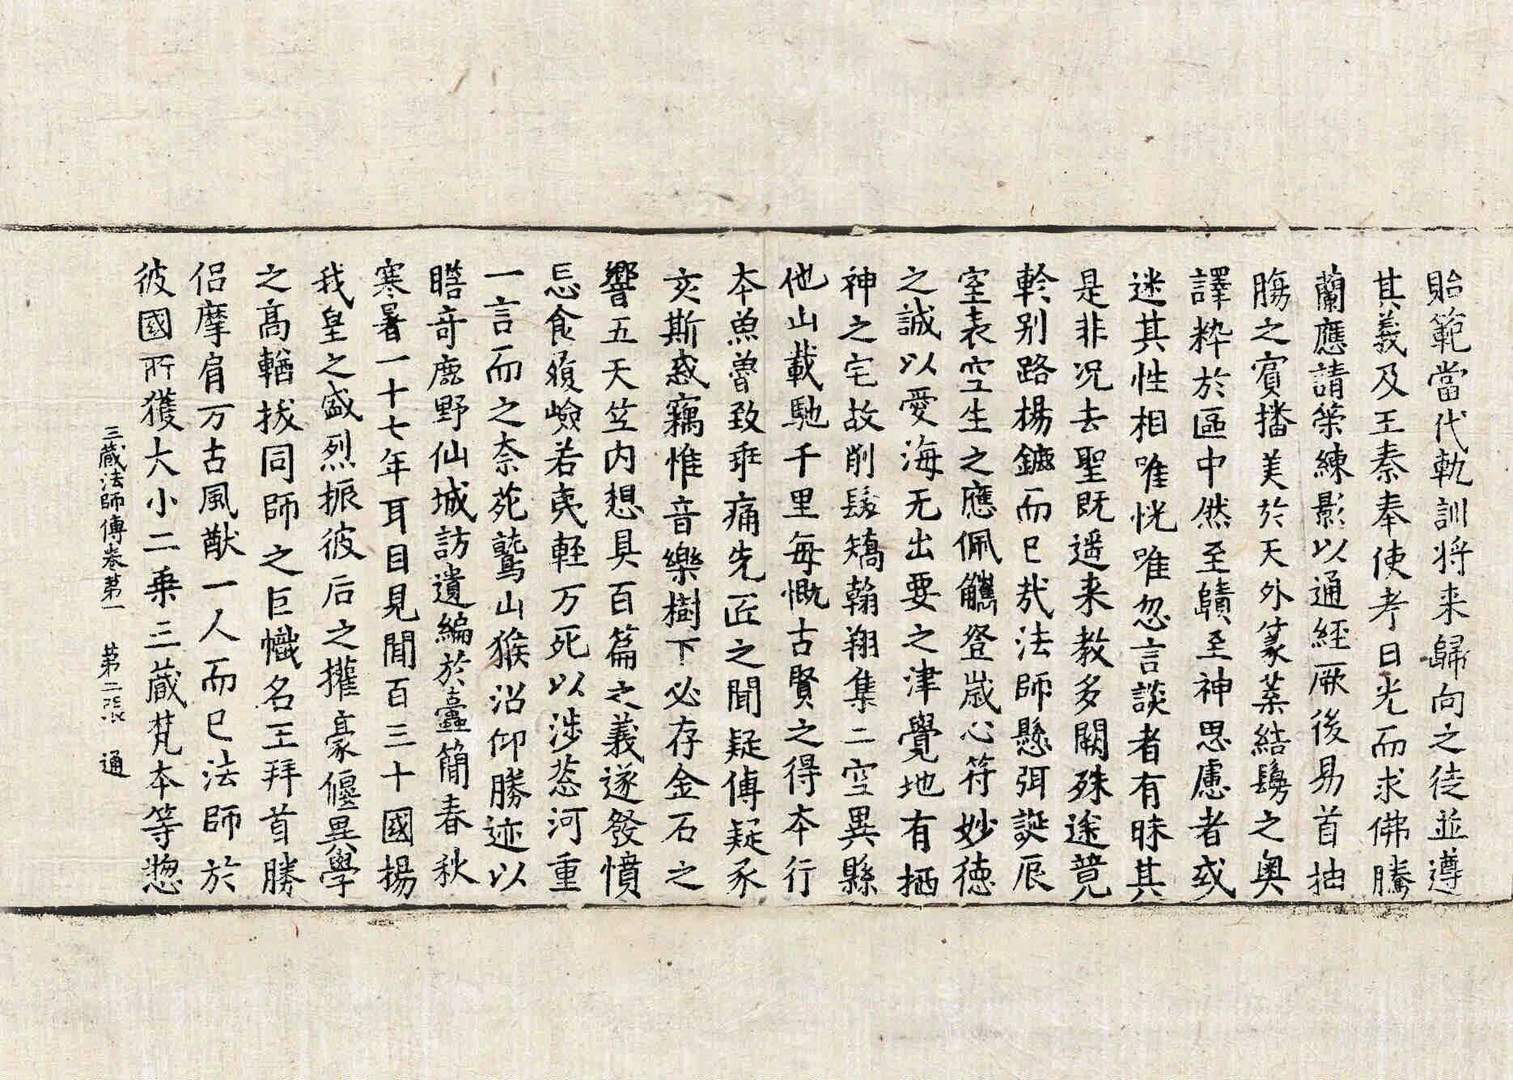 貽範當代軌訓将来歸向之徒並遵
其義及王秦奉使考日光而求佛騰
蘭應請策練影以通經厥後易首抽
膓之賔播美於天外篆葉結鬘之奥
譯粹於區中然至賾至神思慮者或
迷其性相唯恍唯忽言談者有昧其
是非况去聖既遥来教多闕殊途竟
軫别路楊鑣而已㢤法師懸弭誕辰
室表空生之應佩觿登歲心符妙德
之誠以愛海无出要之津覺地有栖
神之宅故削髮矯翰翔集二空異縣
他山載馳千里每慨古賢之得本行
本魚魯致乖痛先匠之聞疑傳疑豕
亥斯惑竊惟音樂樹下必存金石之
響五天竺内想具百篇之義遂發憤
忘食履嶮若夷輕万死以涉葱河重
一言而之柰苑鷲山猴沼仰勝迹以
瞻奇鹿野仙城訪遺編於蠹簡春秋
寒暑一十七年耳目見聞百三十國揚
我皇之盛烈振彼后之權豪偃異學
之高輶拔同師之巨幟名王拜首勝
侣摩肩万古風猷一人而已法師於
彼國所獲大小二乘三藏梵本等惣
三藏法師傳卷第一 第二張 通